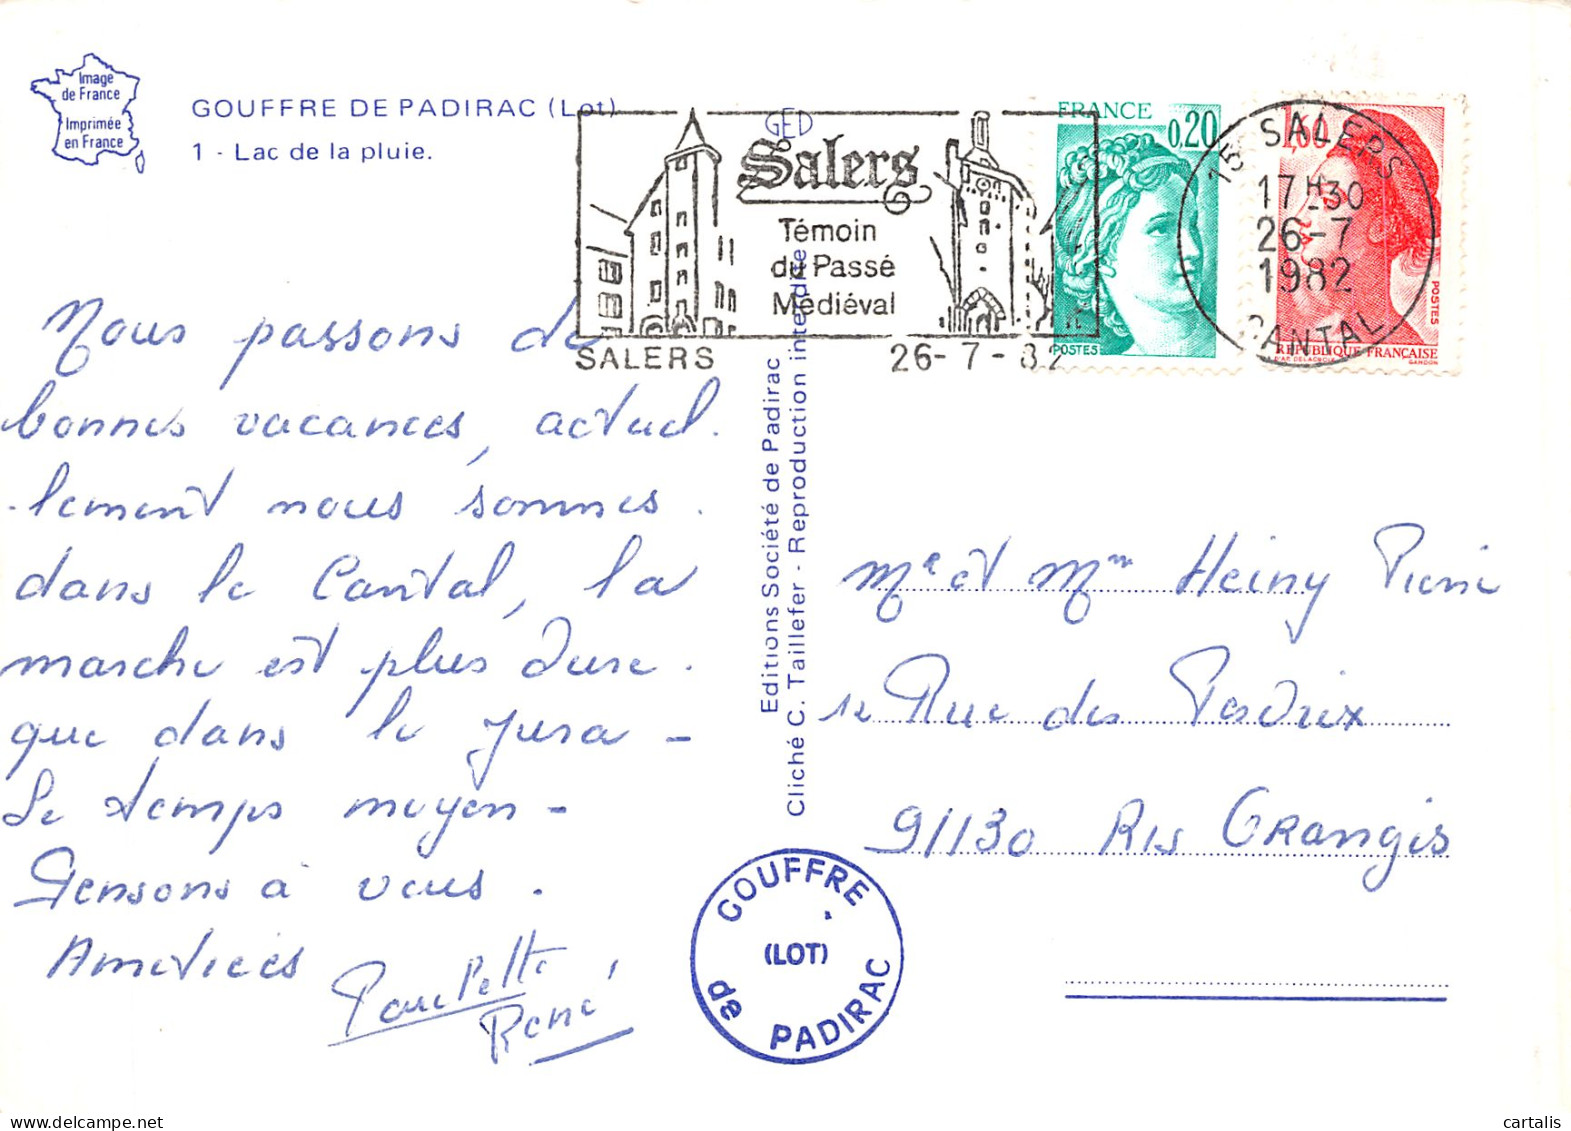 Image
de France
Imprimée
en France
GOUFFRE DE PADIRAC (Lot)
1 - Lac de la pluie.
GED
Salers
Témoin
du Passé
Médiéval
SALERS 26-7-82
FRANCE
0,20
POSTES
15 SALERS
17H30
26-7
1982
CANTAL
1,60
POSTES
REPUBLIQUE FRANÇAISE
D'AP. DELACROIX GANDON
Nous passons de
bonnes vacances, actuel.
-lement nous sommes.
dans le Cantal, la
marche est plus dure.
que dans le Jura -
Le temps moyen -
Pensons à vous.
Amitiées
Paulette
René
Editions Société de Padirac
Cliché C. Taillefer - Reproduction interdite
Mr et Mme Heiny Pierre
12 Rue des Perdrix
91130 Ris Orangis
GOUFFRE
(LOT)
de PADIRAC
cartalis